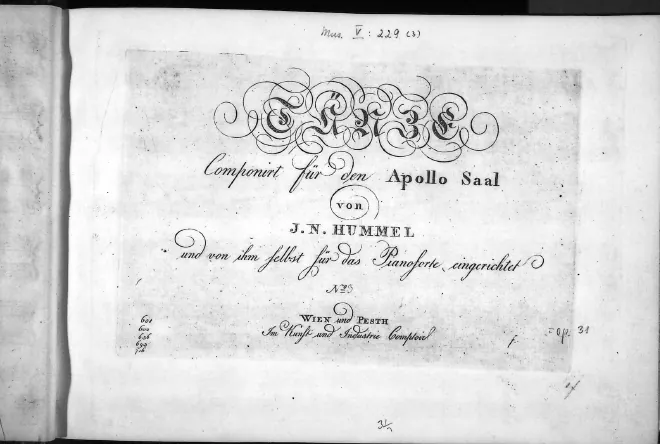 Mus. V : 229 (3)
TÄNZE
Componirt für den Apollo Saal
von
J. N. HUMMEL
und von ihm selbst für das Pianoforte eingerichtet
No 3
WIEN und PESTH
Im Kunst und Industrie Comptoir
op. 31